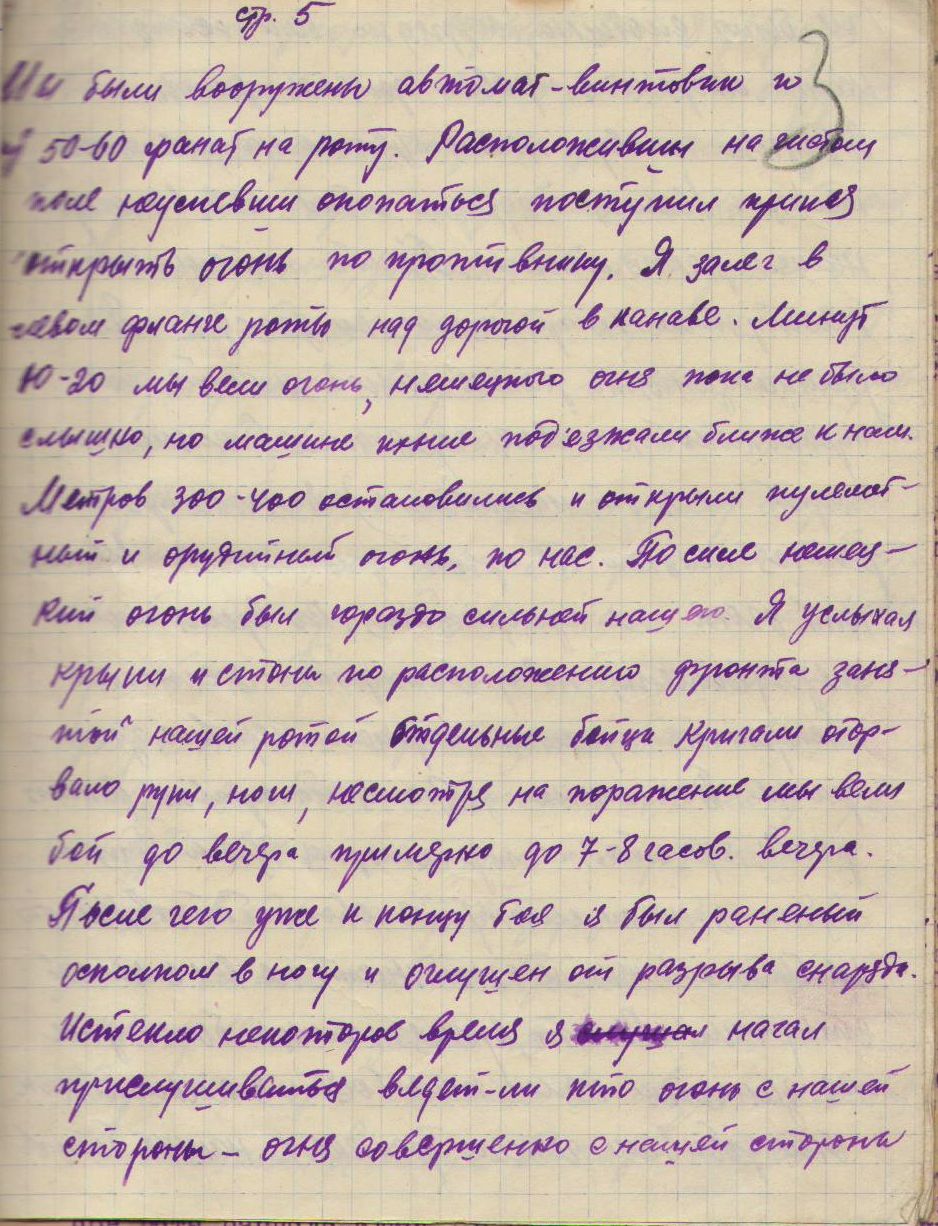 стр. 5
3
Мы были вооружены автомат-винтовки и
у 50-60 гранат на роту. Расположившы на чистом
поле неуспевши окопаться поступил приказ
открыть огонь по противнику. Я залег в
левом фланге роты над дорогой в канаве. Минут
10-20 мы вели огонь, немецкого огня пока не было
слышно, но машине подъезжали ближе к нам.
Метров 300-400 остановились и открыли пулемет-
ный и орудийный огонь, по нас. По силе немец-
кий огонь был гораздо сильней нашего. Я услыхал
крыки и стоны по расположению фронта заня-
той нашей ротой отдельные бойцы кричали отор-
вало руки, ноги, несмотря на поражение мы вели
бой до вечера примерно до 7-8 часов. вечера.
После чего уже к концу боя я был раненый
осколком в ногу и оглушен от разрыва снаряда.
Истекло некоторое время я слушал начал
прислушиваться ведет-ли кто огонь с нашей
стороны - огня совершенно с нашей стороны